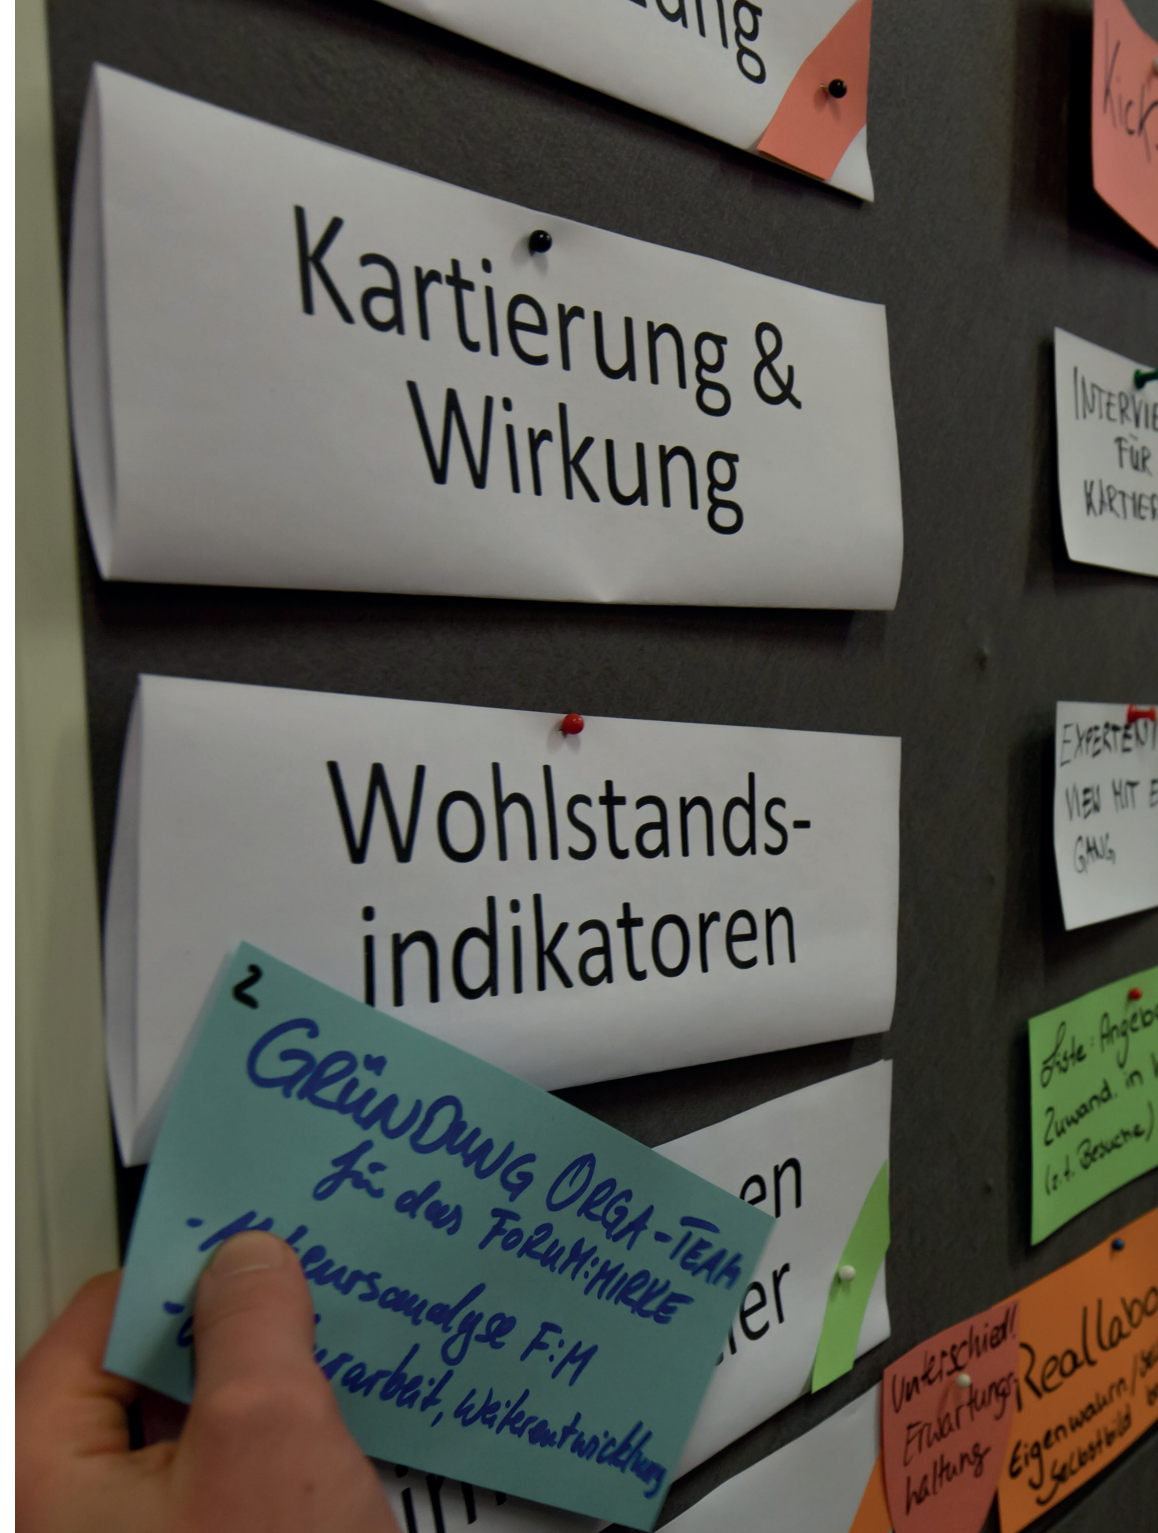 Kartierung &
Wirkung
Wohlstands-
indikatoren
2
GRÜNDUNG ORGA-TEAM
für das FORUM:MIRKE
F:M
Weiterentwicklung
en
er
INTERVIE
FÜR
KARTIER
EXPERTENI
VIEW MIT E
GANG
Liste: Angebo
Zuwand. in
(z.t. Besuche)
Unterschiedl.
Erwartungs-
haltung
Reallabo
Eigenwahrn./
Selbstbild